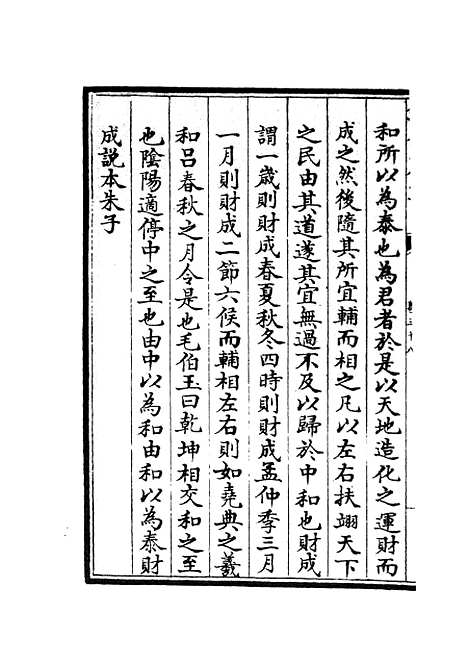 和所以為泰也為君者於是以天地造化之運財而
成之然後隨其所宜輔而相之凡以左右扶翊天下
之民由其道遂其宜無過不及以歸於中和也財成
謂一歲則財成春夏秋冬四時則財成孟仲季三月
一月則財成二節六候而輔相左右則如堯典之羲
和呂春秋之月令是也毛伯玉曰乾坤相交和之至
也陰陽適停中之至也由中以為和由和以為泰財
成說本朱子